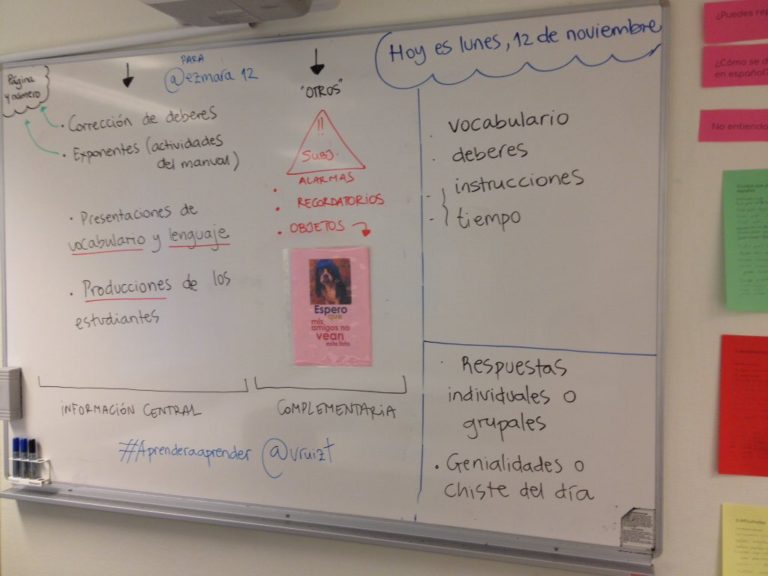 Página
y número
PARA
@ezmara 12
• Corrección de deberes
• Exponentes (actividades
del manual)
• Presentaciones de
vocabulario y lenguaje
• Producciones de los
estudiantes
INFORMACIÓN CENTRAL
"OTROS"
!!
SUBJ.
• ALARMAS
• RECORDATORIOS
• OBJETOS
Espero
que
mis
amigos no
vean
esta foto
COMPLEMENTARIA
#Aprenderaaprender @vruizt
Hoy es lunes, 12 de noviembre
• vocabulario
• deberes
• instrucciones
• tiempo
• Respuestas
individuales o
grupales
• Genialidades o
chiste del día
¿Puedes rep
¿Cómo se d
en español?
No entiendo